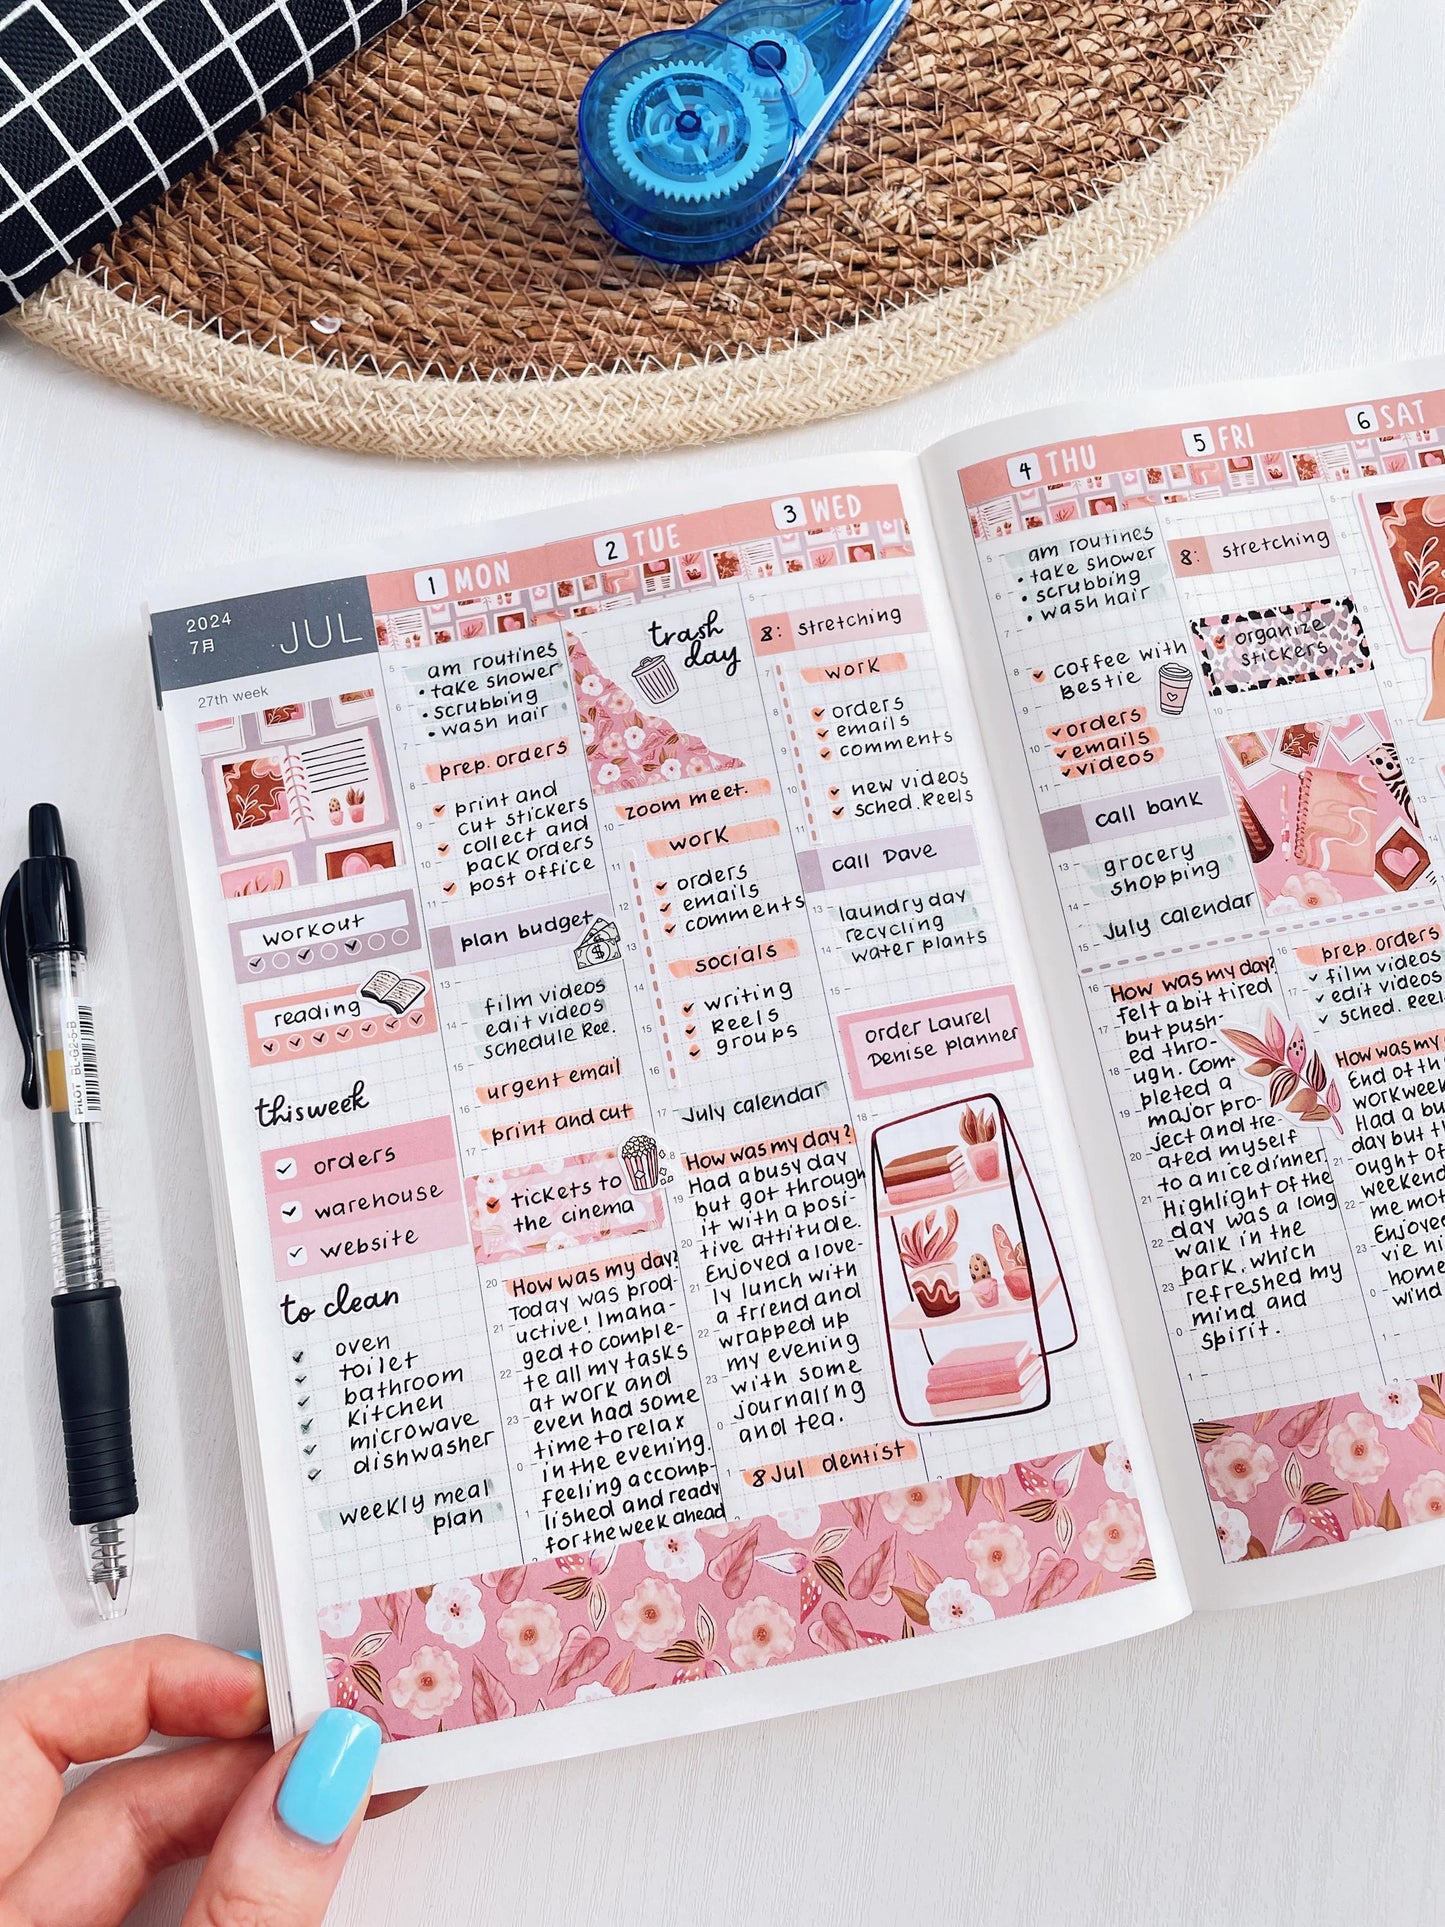 2024
7月
JUL
27th week
workout
reading
this week
orders
warehouse
website
to clean
oven
toilet
bathroom
kitchen
microwave
dishwasher
weekly meal
plan
1 MON
am routines
• take shower
• scrubbing
• wash hair
prep. orders
print and
cut stickers
collect and
pack orders
post office
plan budget
film videos
edit videos
schedule Ree.
urgent email
print and cut
tickets to
the cinema
How was my day?
Today was prod-
uctive! Imana-
ged to comple-
te all my tasks
at work and
even had some
time to relax
in the evening.
Feeling accomp-
lished and ready
for the week ahead
2 TUE
trash
day
zoom meet.
work
orders
emails
comments
socials
writing
Reels
groups
July calendar
How was my day?
Had a busy day
but got through
it with a posi-
tive attitude.
Enjoyed a love-
ly lunch with
a friend and
wrapped up
my evening
with some
journaling
and tea.
8 Jul dentist
3 WED
8: stretching
work
orders
emails
comments
new videos
sched. Reels
call Dave
laundry day
recycling
water plants
order Laurel
Denise planner
4 THU
am routines
• take shower
• scrubbing
• wash hair
coffee with
Bestie
orders
emails
videos
call bank
grocery
shopping
July calendar
How was my day?
felt a bit tired
but push-
ed thro-
ugh. Com-
pleted a
major pro-
ject and tre-
ated myself
to a nice dinner.
Highlight of the
day was a long
walk in the
park, which
refreshed my
mind and
spirit.
5 FRI
8: stretching
organize
stickers
prep. orders
film videos
edit videos
sched. Reel
How was my
End of th
workweek
Had a bu
day but t
ought of
weekend
me mot
Enjoyed
vie ni
home
wind
6 SAT
PILOT BL-G2-5-B